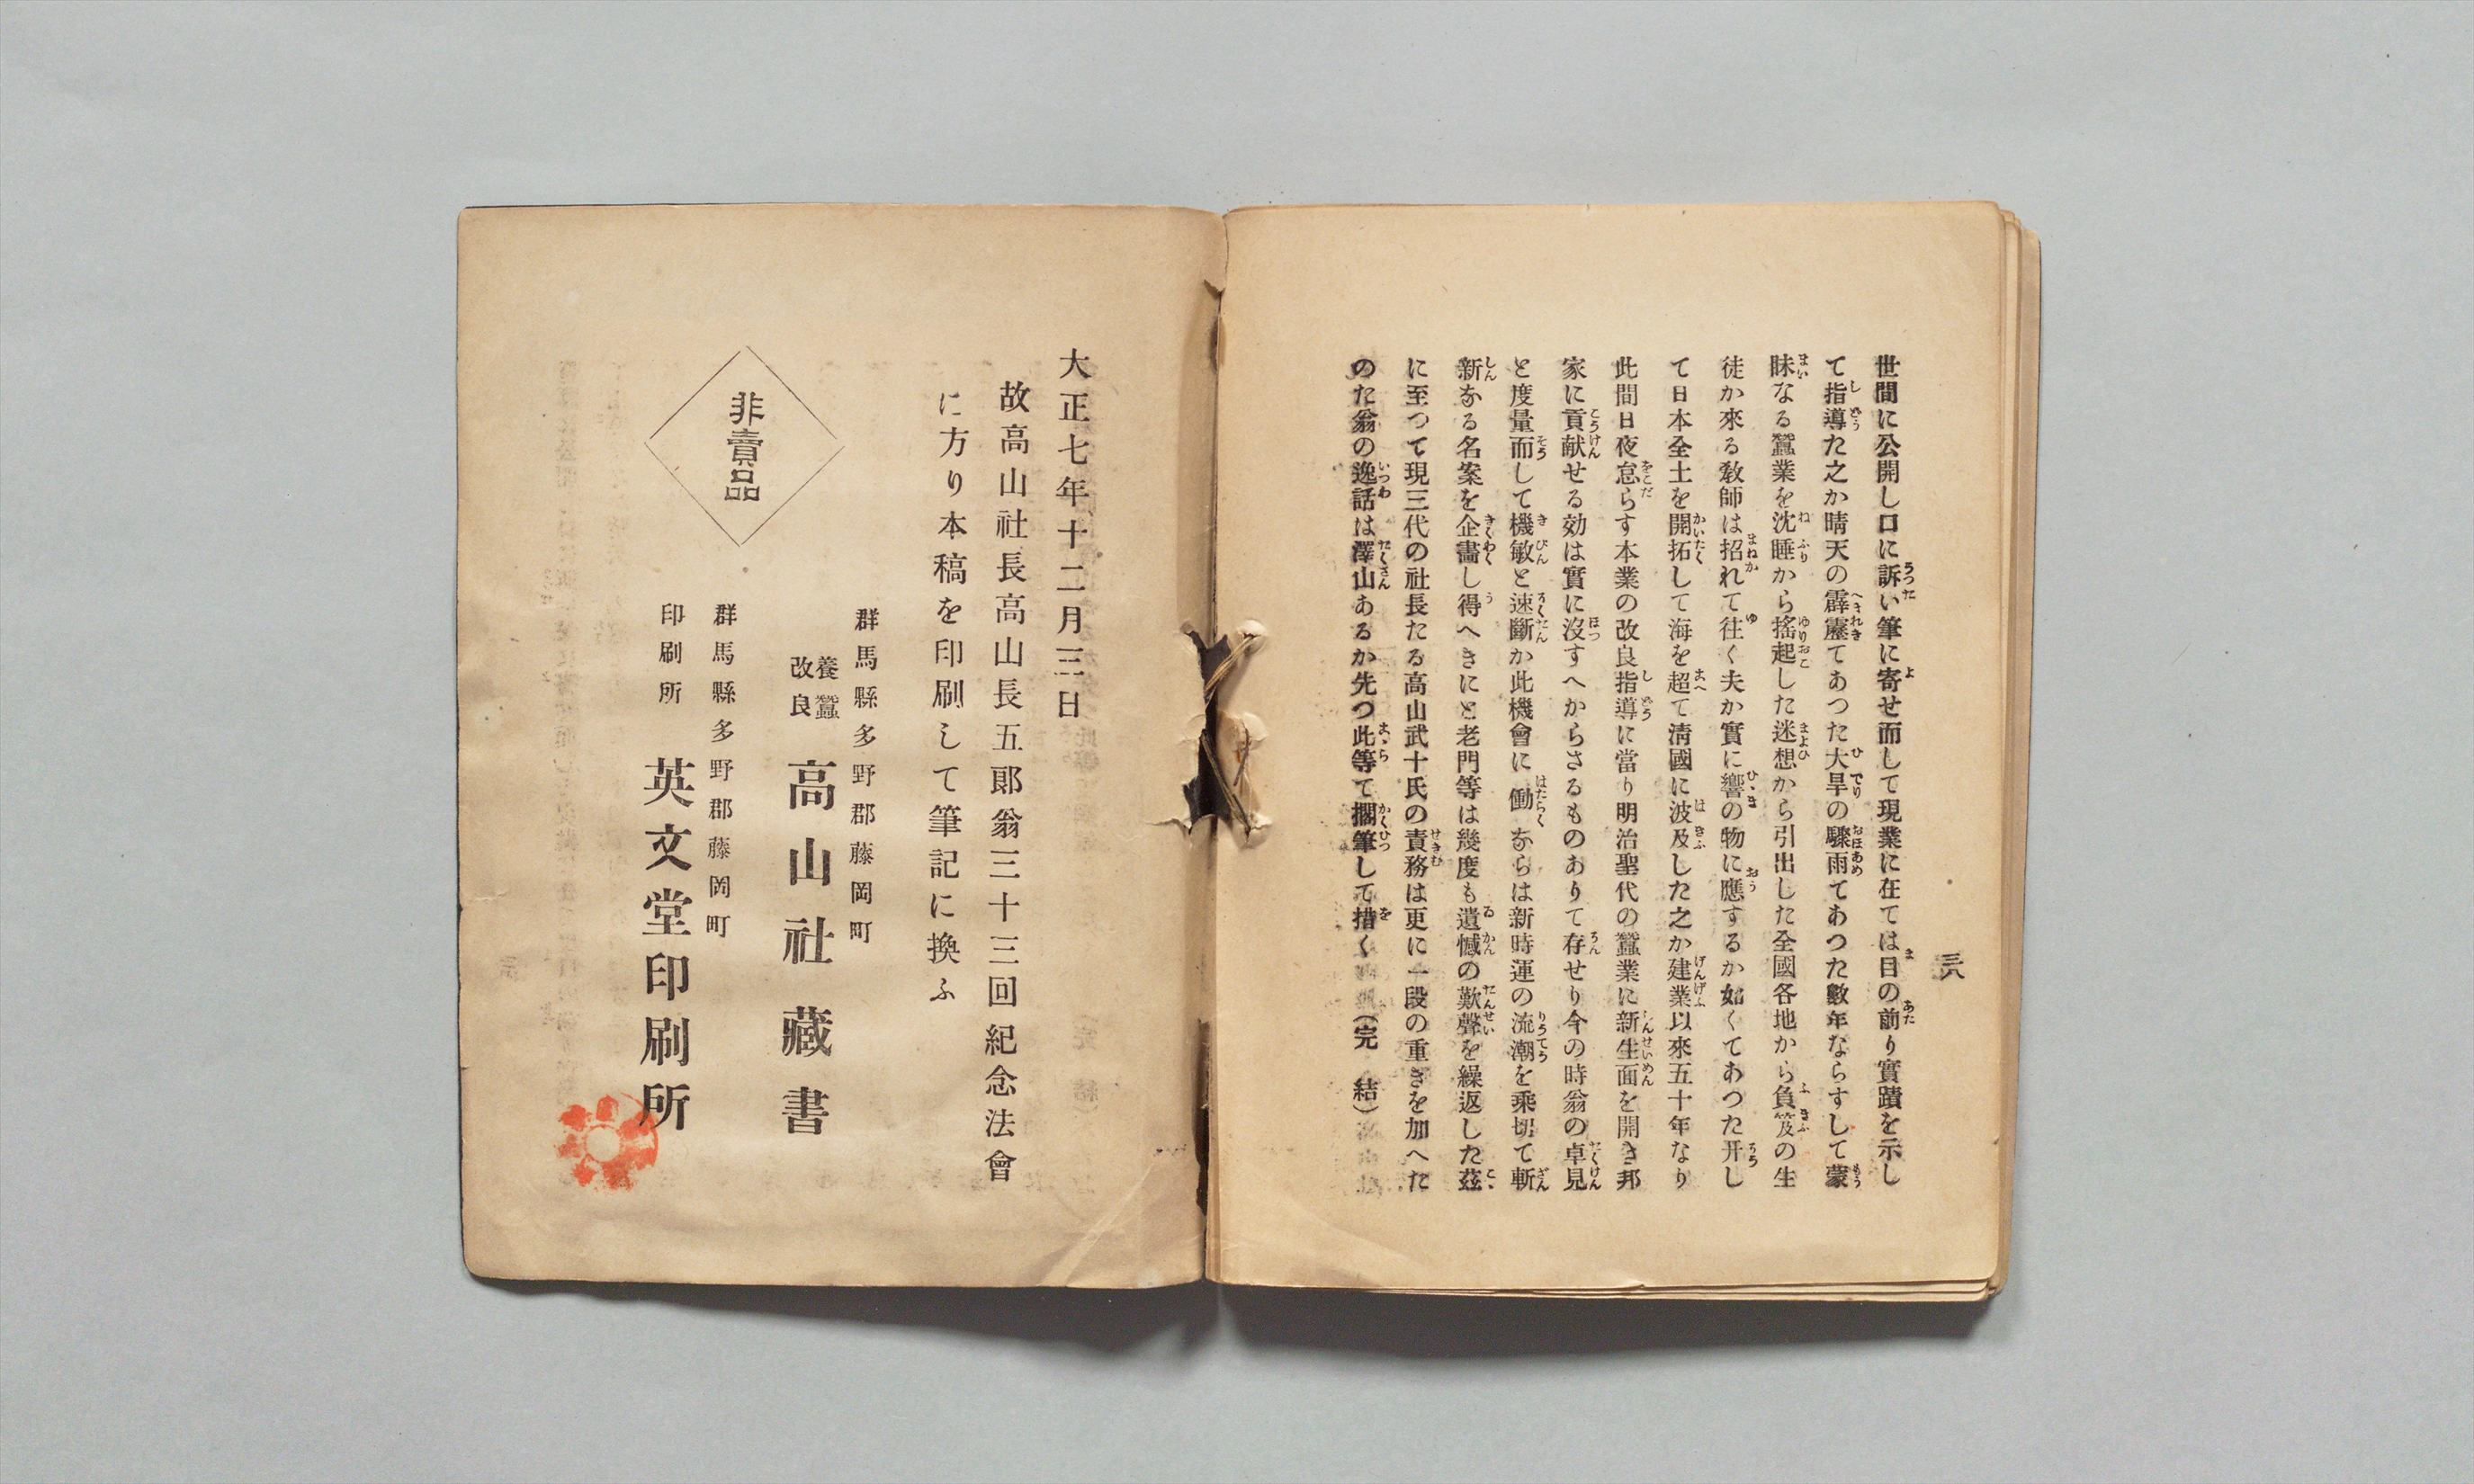 三八
世間に公開し口に訴い筆に寄せ而して現業に在ては目の前り實蹟を示し
て指導た之か晴天の霹靂てあつた大旱の驟雨てあつた數年ならすして蒙
昧なる蠶業を沈睡から搖起した迷想から引出した全國各地から負笈の生
徒か來る敎師は招れて往く夫か實に響の物に應するか如くてあつた开し
て日本全土を開拓して海を超て淸國に波及した之か建業以來五十年なり
此間日夜怠らす本業の改良指導に當り明治聖代の蠶業に新生面を開き邦
家に貢献せる効は實に沒すへからさるものありて存せり今の時翁の卓見
と度量而して機敏と速斷か此機會に働からは新時運の流潮を乘切て斬
新なる名案を企畵し得へきにと老門等は幾度も遺憾の歎聲を繰返した茲
に至つて現三代の社長たる高山武十氏の責務は更に一段の重きを加へた
のた翁の逸話は澤山あるか先つ此等て擱筆して措く（完　結）
大正七年十二月三日
故高山社長高山長五郎翁三十三回紀念法會
に方り本稿を印刷して筆記に換ふ
群馬縣多野郡藤岡町
養蠶改良　高山社藏書
非賣品
群馬縣多野郡藤岡町
印刷所　英文堂印刷所